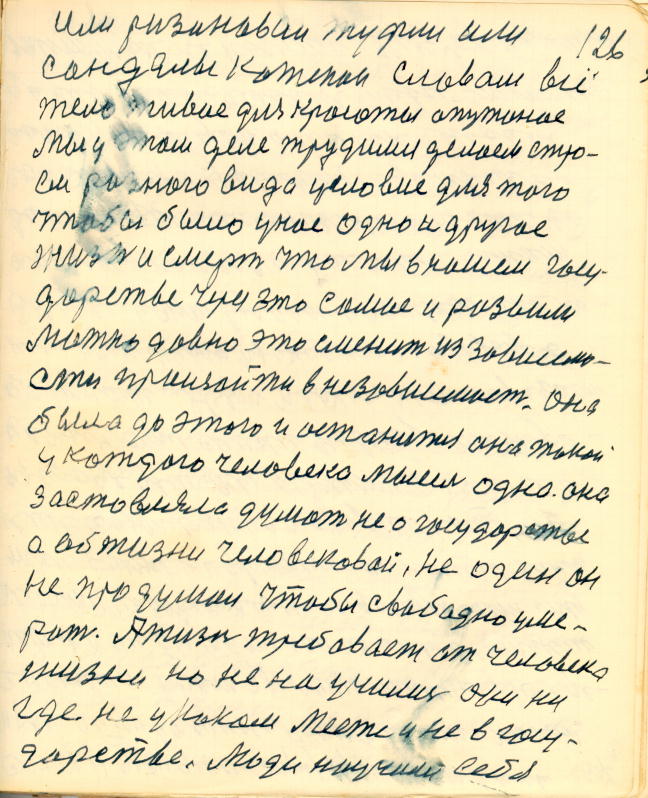 или ризановаи туфли или 126
сандалы котепаи словаи всё
тело живое для красоты опутоное
Мы у этом деле трудимя делаем стро-
ем разного вида условие для того
чтобы было уное одно и другое
жизн и смерт что мы в нашем госу-
дарстве через это самое и розвили
можно довно это сменит из зовисемо-
сти приизойти в незовисемост. она
была до этого и останится она токой
у каждого человека мысел одна. она
застовляла думат не о государстве
а об жизни человековай, не один он
не продумал чтобы свабадно уме-
рат. А жизн требавает от человека
жизни но не на училис они ни
где. не у каком месте и не в госу-
дарстве. Люди научили себя